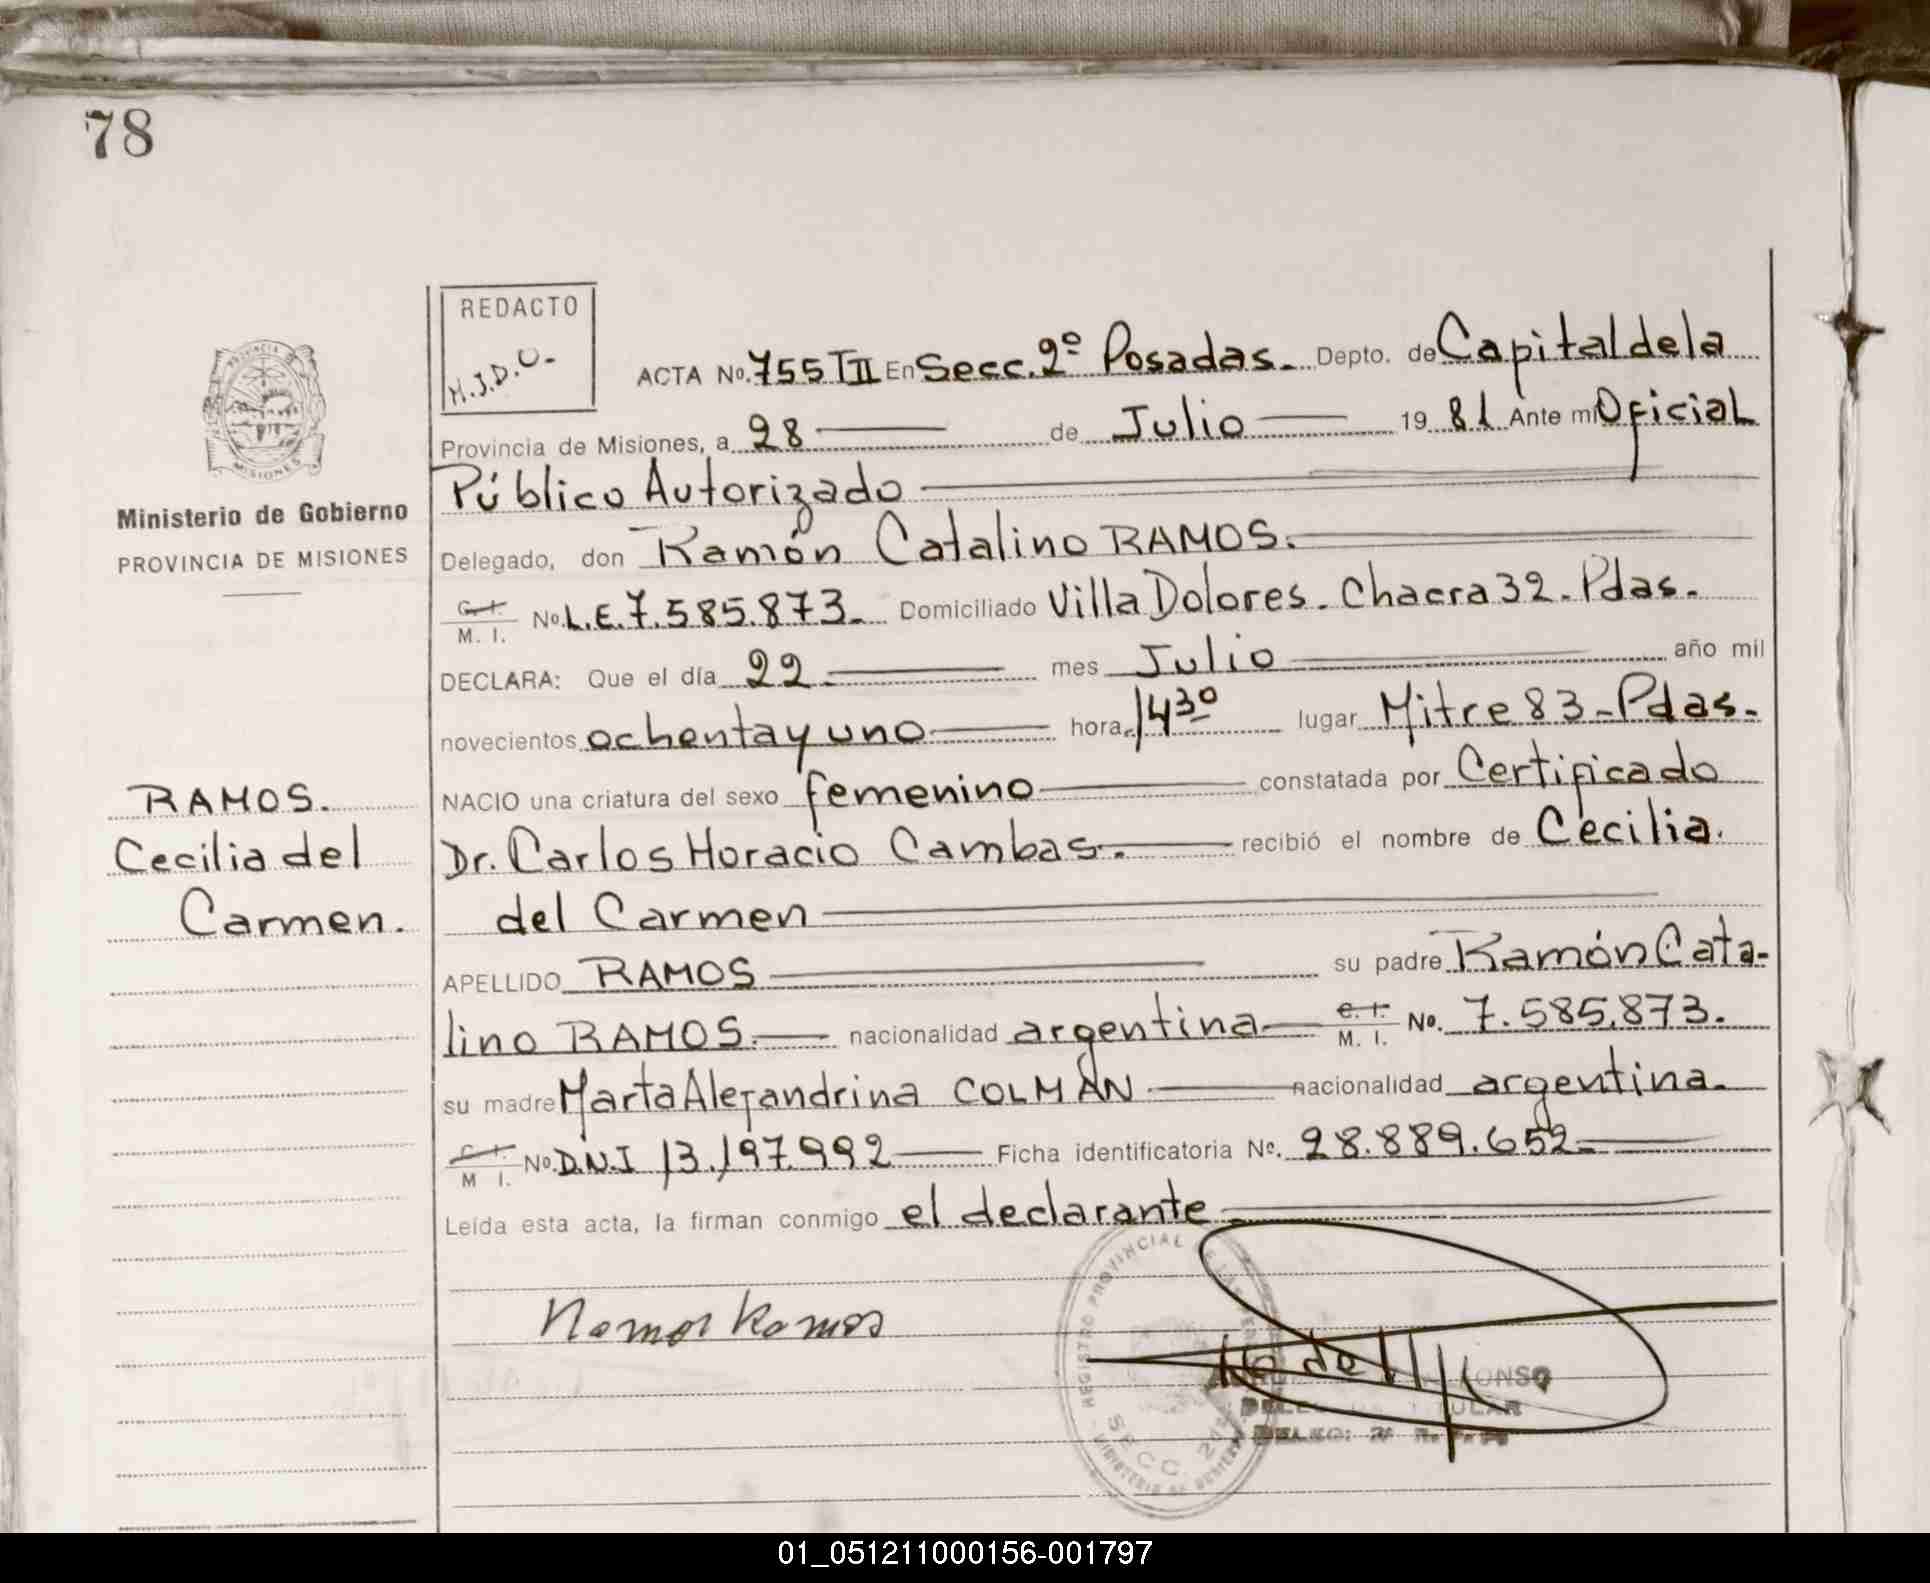 78
REDACTO
H.J.D.O-
ACTA No. 755 TII En Secc. 2º Posadas. Depto. de Capital de la
Provincia de Misiones, a 28 de Julio 19 81 Ante mi Oficial
Público Autorizado
Ministerio de Gobierno
PROVINCIA DE MISIONES
Delegado, don Ramón Catalino RAMOS.
C. I. / M. I. No. L.E. 7.585.873. Domiciliado Villa Dolores. Chacra 32. Pdas.
DECLARA: Que el día 22 mes Julio año mil
novecientos ochenta y uno hora 14 30 lugar Mitre 83 - Pdas.
RAMOS.
Cecilia del
Carmen.
NACIO una criatura del sexo femenino constatada por Certificado
Dr. Carlos Horacio Cambas. recibió el nombre de Cecilia
del Carmen
APELLIDO RAMOS su padre Ramón Cata-
lino RAMOS. nacionalidad argentina C. I. / M. I. No. 7.585.873.
su madre Marta Alejandrina COLMAN nacionalidad argentina.
C. I. / M I. No. D.N.I 13.197.992 Ficha identificatoria Nº. 28.889.652.
Leída esta acta, la firman conmigo el declarante
Ramos
REGISTRO PROVINCIAL DE LAS
SECC. 2da
01_051211000156-001797